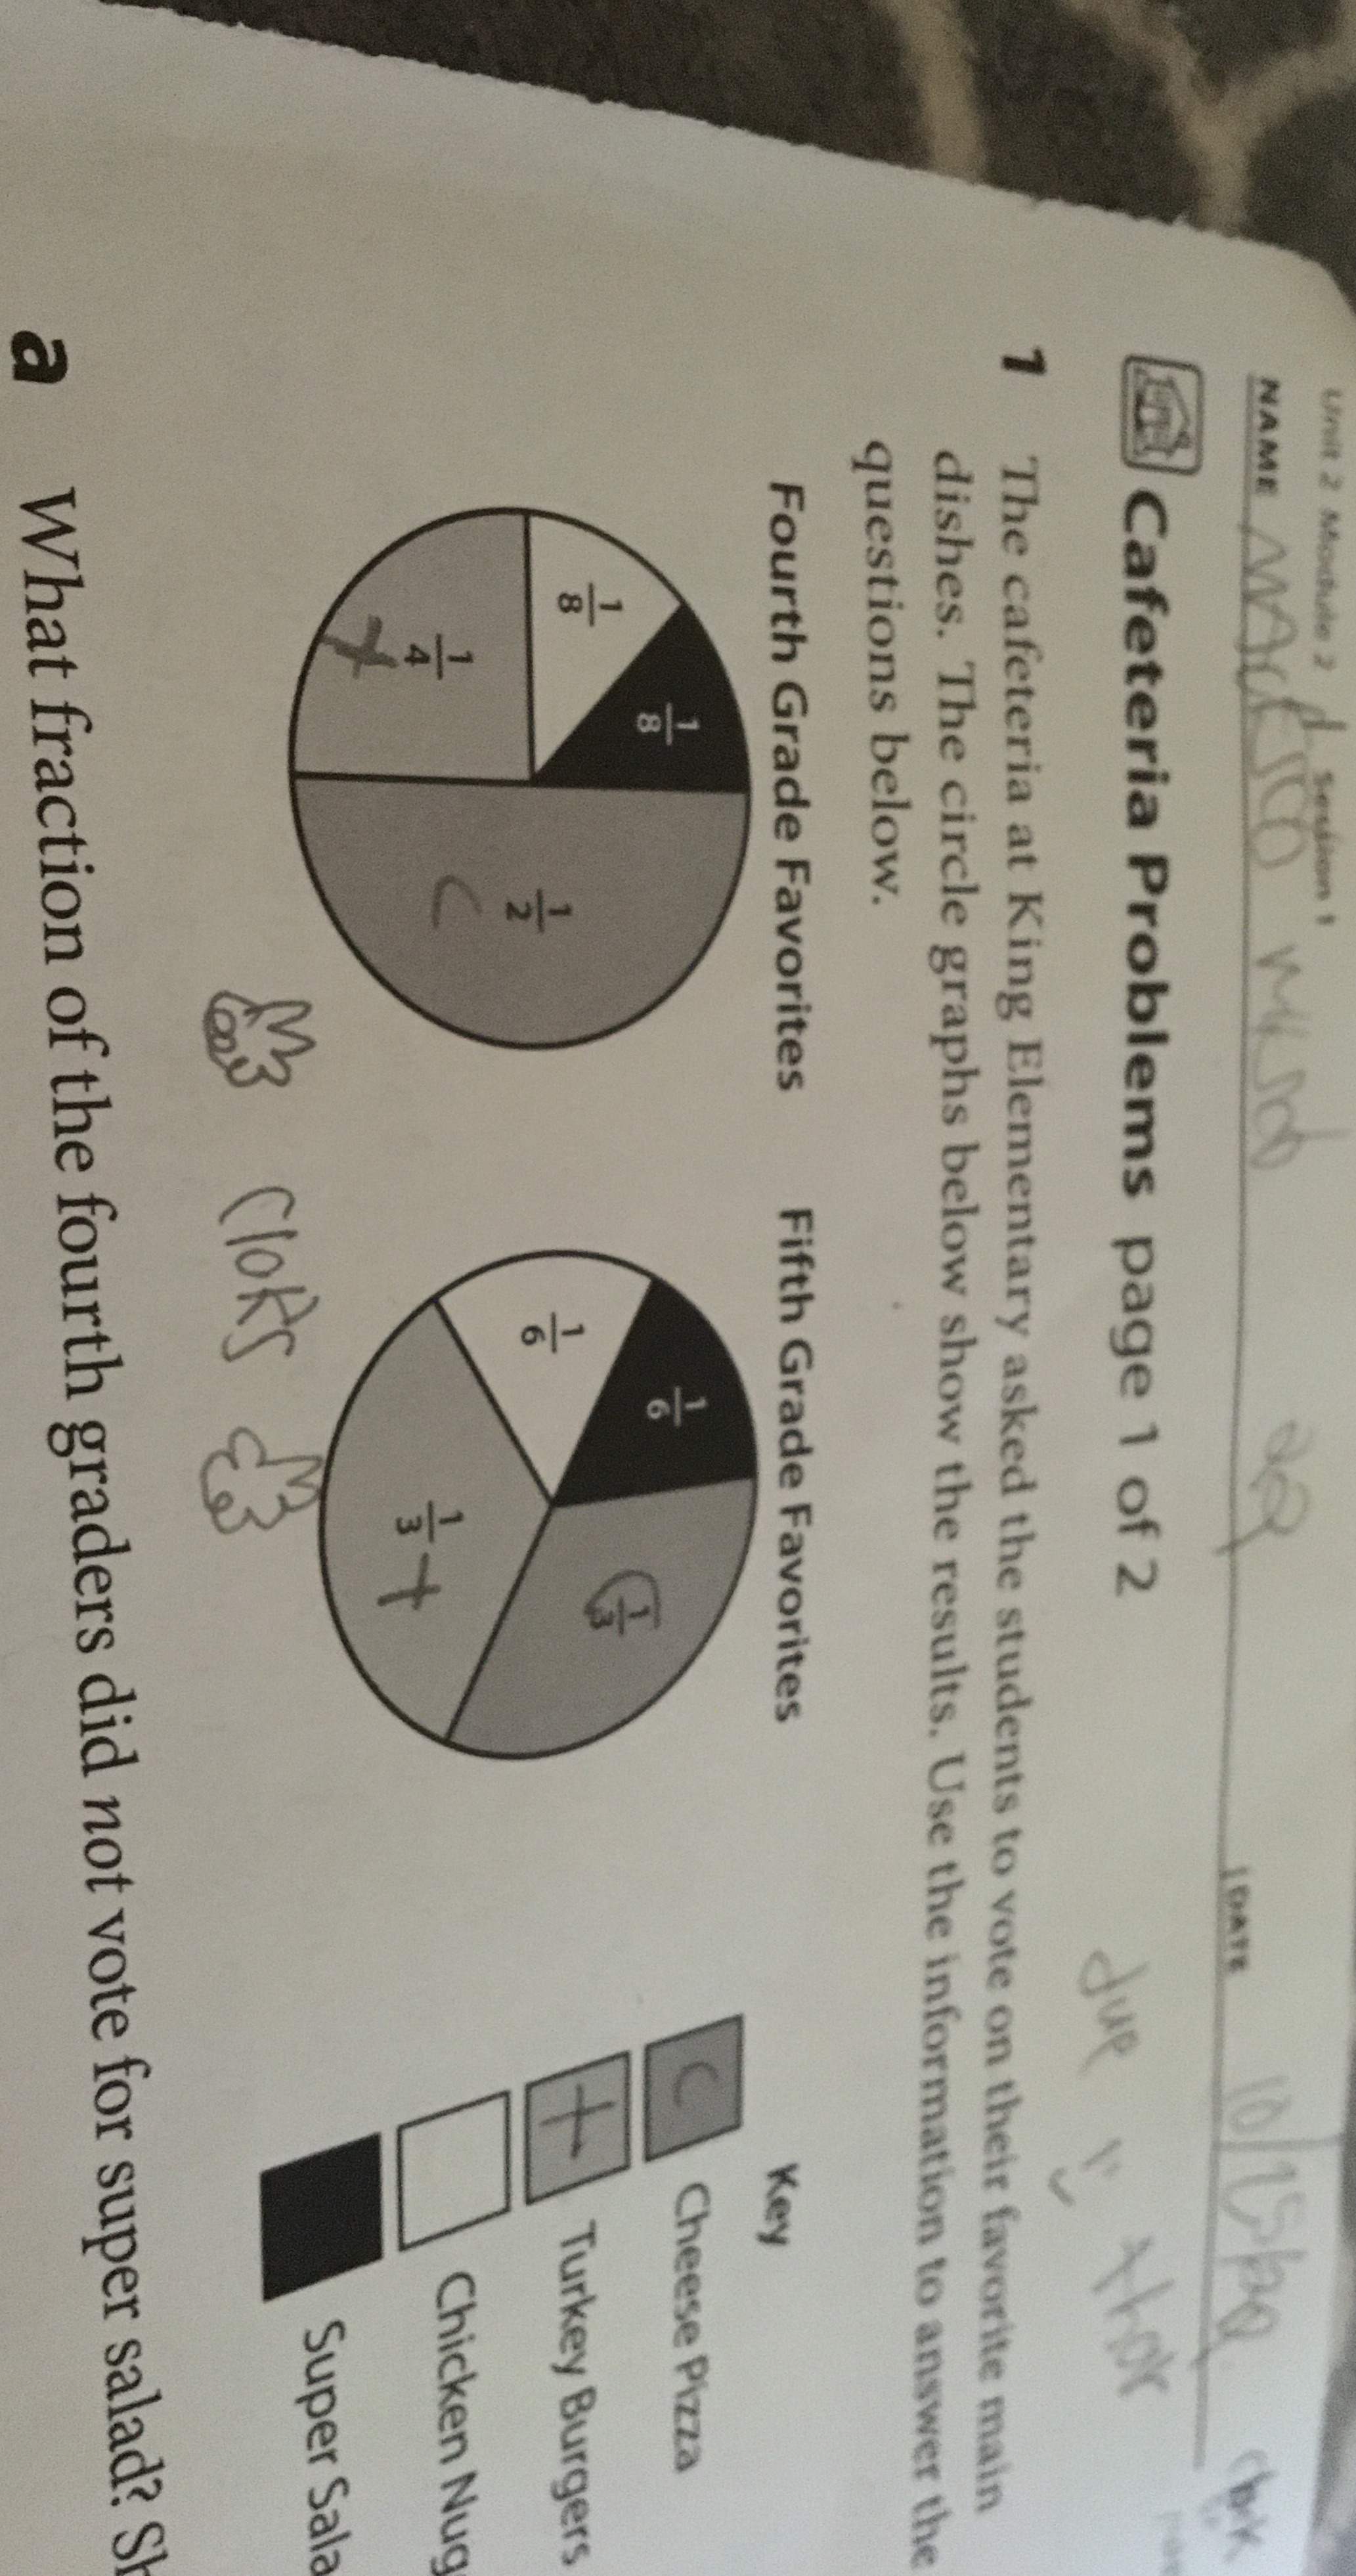 Unit 2 Module 2 Session 1
NAME DATE
Cafeteria Problems page 1 of 2
due Thor
1 The cafeteria at King Elementary asked the students to vote on their favorite main
dishes. The circle graphs below show the results. Use the information to answer the
questions below.
Fourth Grade Favorites
1/8
1/8
1/4
1/2 C
Fifth Grade Favorites
1/6
1/6
1/3
1/3
Key
C Cheese Pizza
Turkey Burgers
Chicken Nug
Super Sala
a What fraction of the fourth graders did not vote for super salad? Sh